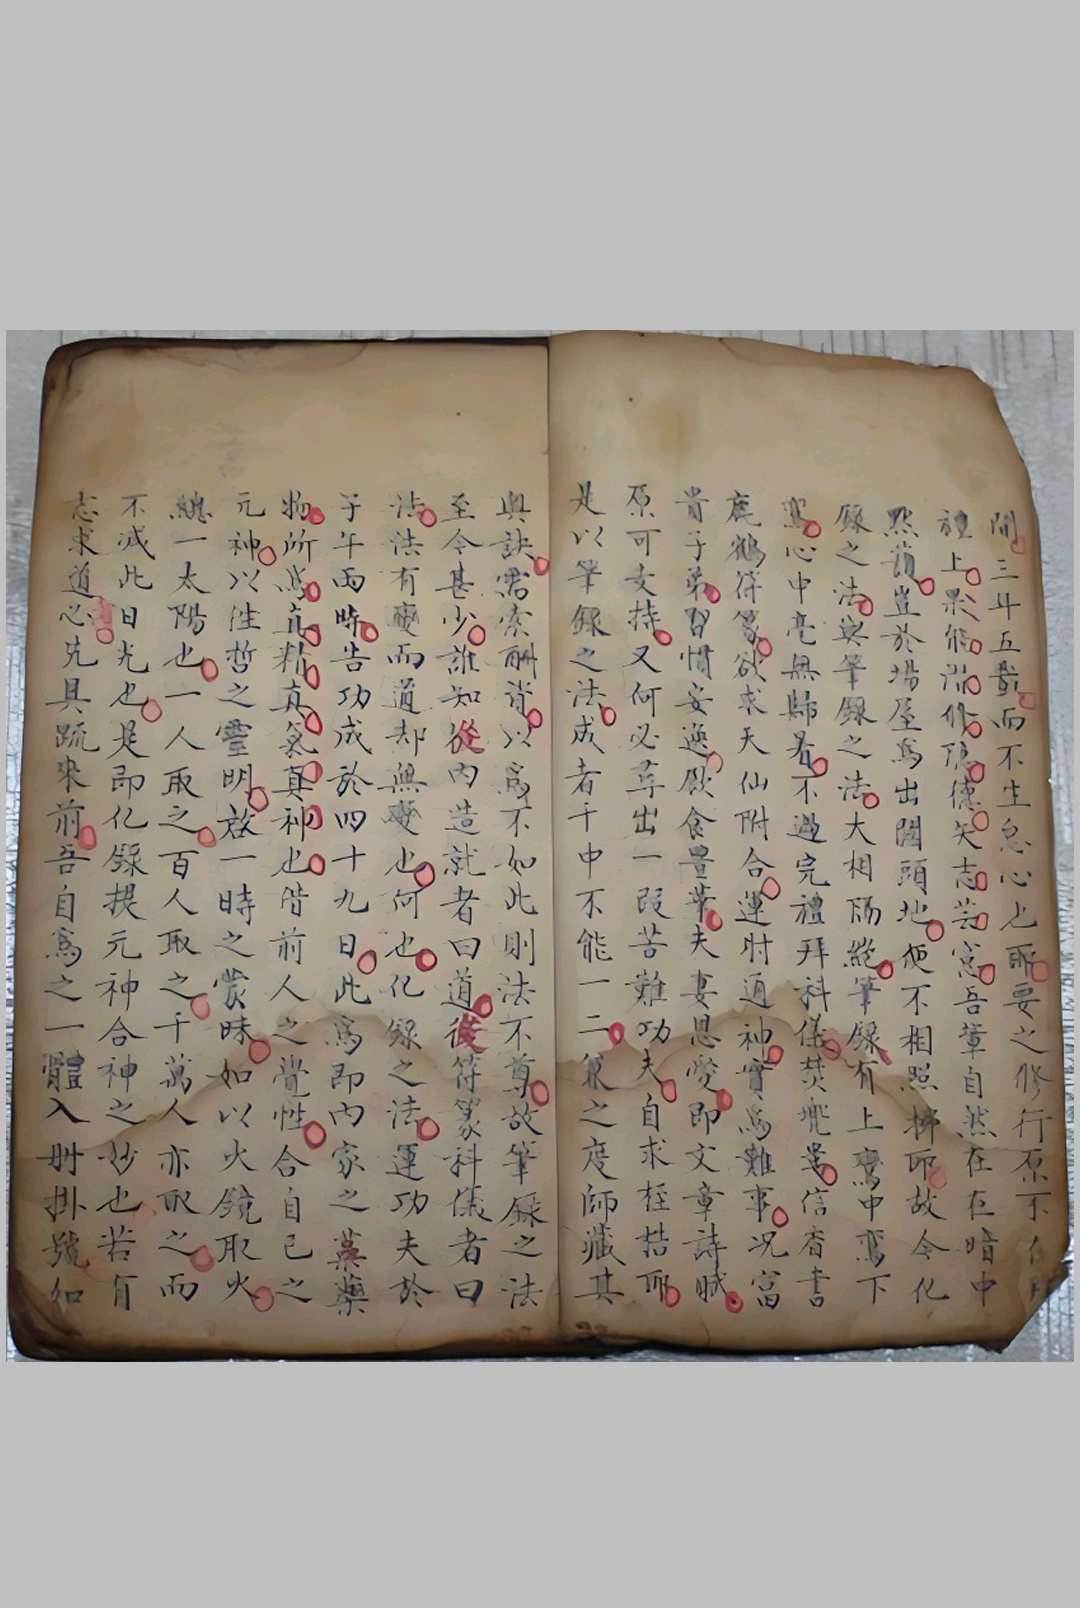 間三年五載而不生怠心也職要之修行原不
禮上果能滿修隱德矢志芸窓吾輩自然在在暗中
默苻豈於場屋爲出關頭地便不相照拂耶故今化
錄之法與筆錄之法大相隔絶筆錄有上鸞中鸞下
鸞心中毫無歸着不過完禮拜科儀焚兠爲信香書
鹿鶴符篆欲求天仙附合運肘通神實爲難事况富
貴子弟習慣安逸飲食豐華夫妻恩愛即文章詩賦
原可支持又何必尋出一段苦難功夫自求桎梏耶
是以筆錄之法成者千中不能一二兼之度師藏其
與訣需索酬谢以爲不如此則法不尊故筆錄之法
至今甚少誰知從內造就者曰道從符篆科儀者曰
法法有變而道却無變也何也化錄之法運功夫於
子午兩時告功成於四十九日此爲即內家之藥
物所爲真精真氣真神也借前人之覺性合自己之
元神以性哲之靈明啟一時之蒙昧如以火鏡取火
總一太陽也一人取之百人取之千萬人亦取之而
不減此日光也是即化錄提元神合神之妙也若有
志求道心先具疏來前吾自爲之一體入册掛號如